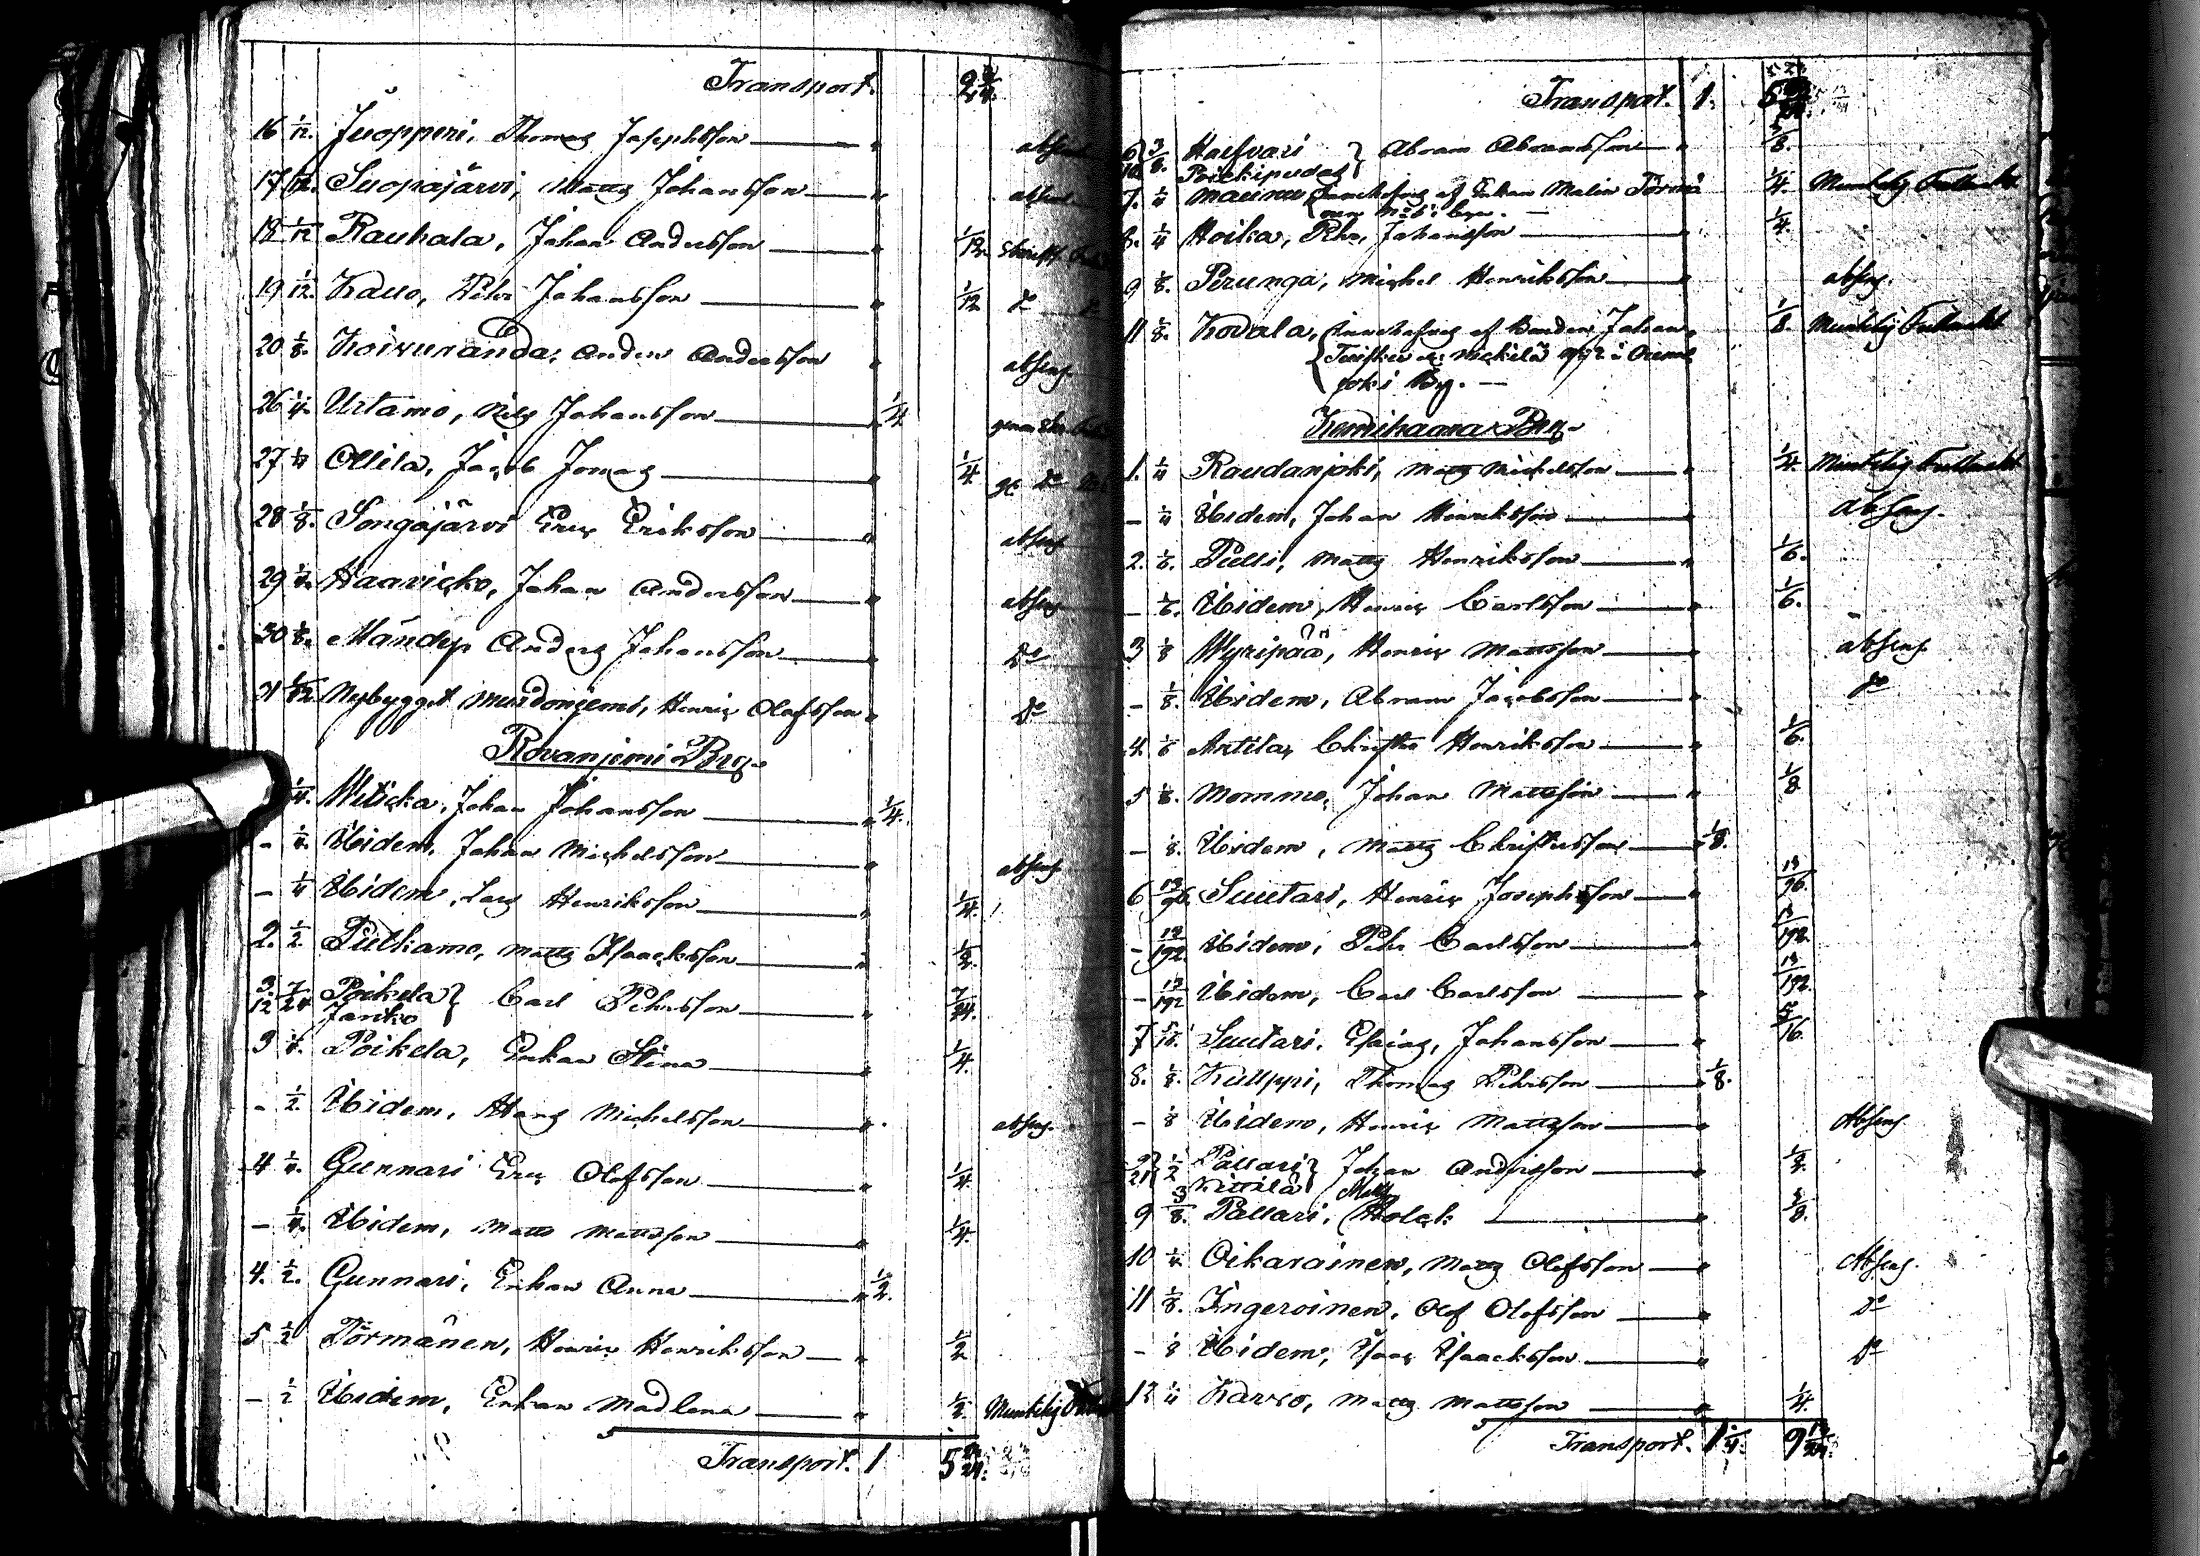 Transport.
16 1/12. Juopperi, Thomas Josephsson — " absens
17 1/12. Suopajärvi, Matts Johansson — " absens
18 1/12 Rauhala, Johan Andersson — " 1/12.
19 1/12. Kauo, Pehr Johansson — " 1/12 do do
20 1/8. Koivuranda, Anders Andersson " absens
26 1/4. Urtamo, Nils Johansson — 1/4
27 1/4 Ollila, Jacob Jonas — " 1/4
28 1/8. Songajärvi Eric Eriksson — " absens
29 Haavicko, Johan Andersson — " absens
30 1/8. Mändy, Anders Johansson — " Do
31 1/12 Nybygget Muidonjemi, Henric Olofsson " Do
Rovanjemi By
1/4. Witicka, Johan Johansson — " 1/4.
- 1/4 Ibidem, Johan Michelsson — " absens
- 1/4 Ibidem, Lars Henriksson — " 1/4.
2. 1/2. Pulkamo, Matts Isaacksson — " 1/2.
3. 12 7/24 Poikela } Carl Pehrsson — " 7/24.
Janko
3 1/4. Poikela, Enkan Stina — " 1/4.
- 1/2. Ibidem, Hans Michelsson — " absens
4 1/4. Gunnari Eric Olofsson — " 1/4
- 1/4. Ibidem, Matts Mattsson — " 1/4.
4. 1/2. Gunnari, Enkan Anna — " 1/2.
5 1/2 Törmänen, Henric Henriksson — " 1/2
- 1/2 Ibidem, Enkan Madlena — " 1/2. Muntelig
Transport. 1 5 22/24.
Transport. 1.
Abram Abramsson — " 3/8.
7. 1/4 af Enkan Malin 1/4. Muntelig Fullmakt
8. 1/4 Hoika, Johansson — 1/4.
9 1/8. Perunga, Michel Henriksson — " absens.
11 1/8. Kovala, af Bonden Johan 1/8. Muntelig Fullmakt
joki By. —
Kemihaara By
1. 1/4 Raudanjoki, Matts Michelsson — " 1/4. Muntelig Fullmakt
- 1/4 Ibidem, Johan Henriksson — " absens.
2. 1/6. Pulli, Matts Henriksson — " 1/6.
- 1/6. Ibidem, Henric Carlsson — " 1/6.
3 1/8 Myripää, Henric Mattsson — " absens
- 1/8. Ibidem, Abram Jacobsson — " do
4. 1/6 Antila, Christer Henriksson — " 1/6.
5 1/8. Mommo, Johan Mattsson — " 1/8
- 1/8. Ibidem, Matts Christersson — 1/8.
6 13/96. Suutari, Henric Josephsson — " 13/96.
- 13/192. Ibidem, Pehr Carlsson — " 13/192.
- 13/192 Ibidem, Carl Carlsson — " 13/192.
7 5/16. Suutari, Esaias, Johansson — " 5/16.
8. 1/8. Kulppi, Thomas Pehrsson — 1/8.
- 1/8 Ibidem, Henric Mattsson — " Absens
9 21 1/2 Pallari } Johan Andersson — " 1/2.
Kittilä
9 3/8. Pallari, Holck — " 3/8.
10 1/4 Oikarainen, Matts Olofsson — " Absens.
11 1/8. Ingeroinen, Olof Olofsson — " do
- 1/8 Ibidem, Isaac Isaacksson — " do
12 1/4 Karvo, Matts Mattsson — " 1/4.
Transport. 1 1/4. 9 13/24.